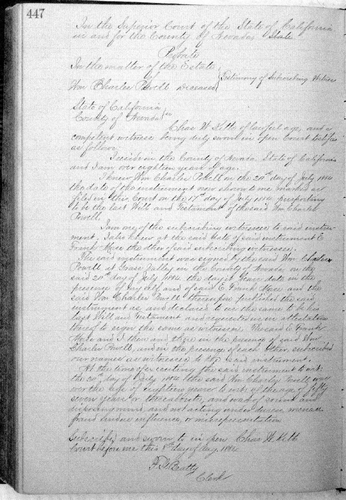 447
In the Superior Court of the State of California
in and for the County of Nevada State
Probate
In the matter of the Estate
of Testimony of Subscribing Witness
Wm Charles Powell Deceased
State of California
County of Nevada
Chas W. Kitts of lawful age, and a
competent witness being duly sworn in open Court testifies
as follows
I reside in the County of Nevada State of California
and I am over eighteen years of age.
I knew Wm Charles Powell on the 20th day of July 188
the date of the instrument now shown to me marked as
filed in this Court on the day of July 188 purporting
to be the last Will and Testament of the said Wm Charles
Powell.
I am one of the subscribing witnesses to said instru-
ment. I also knew at the said date of said instrument E
Frank the other of said subscribing witnesses.
The said instrument was signed by the said Wm Charles
Powell at Grass Valley in the County of Nevada on the
said 20th day of July 188 the day it bears date in the
presence of myself and of said E Frank and the
said Wm Charles Powell thereupon published the said
instrument as, and declared to us the same to be his
last Will and Testament and requested us in attestation
thereof to sign the same as witnesses. The said E Frank
and I then and there in the presence of said Wm
Charles Powell, and in the presence of each other subscribed
our names as witnesses to the said instrument.
At the time of executing the said instrument to wit
the 20th day of July 188 the said Wm Charles Powell was
over the age of eighteen years to wit of the age of fifty
seven years or thereabouts, and was of sound and
disposing mind, and not acting under duress, menace
fraud undue influence, or misrepresentation
Subscribed and sworn to in open Chas W. Kitts
Court before me this day of Aug. 188
Clerk